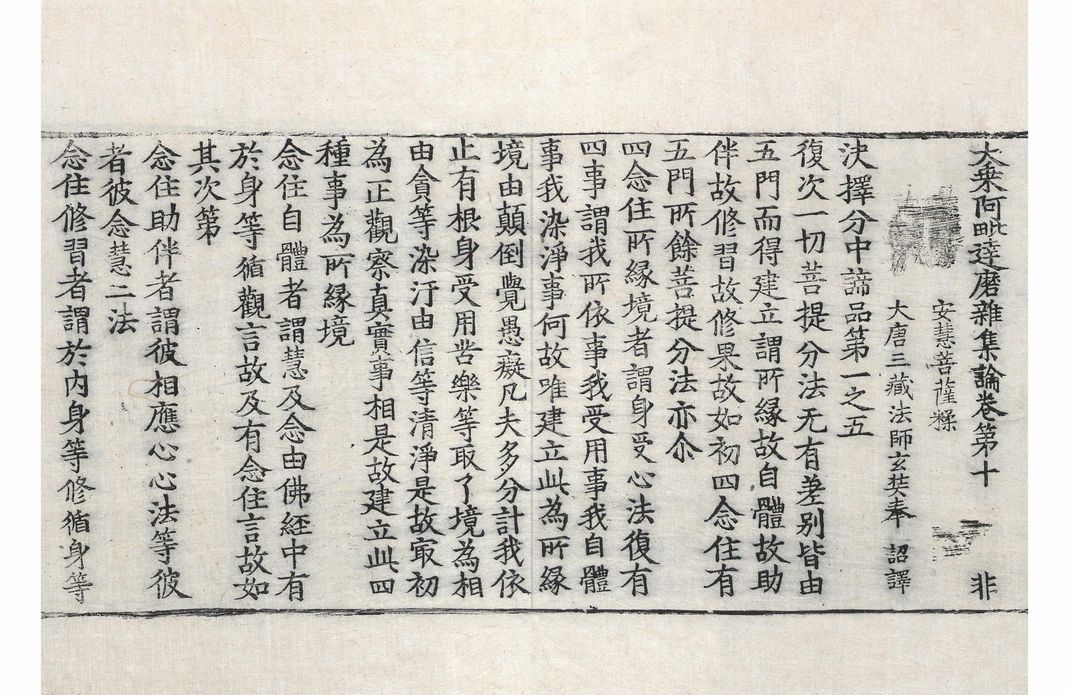 大乗阿毗達磨雜集論卷第十 非
安慧菩薩糅
大唐三藏法師玄奘奉 詔譯
決擇分中諦品第一之五
復次一切菩提分法无有差別皆由
五門而得建立謂所緣故自體故助
伴故修習故修果故如初四念住有
五門所餘菩提分法亦尒
四念住所緣境者謂身受心法復有
四事謂我所依事我受用事我自體
事我染淨事何故唯建立此為所緣
境由顛倒覺愚癡凡夫多分計我依
止有根身受用苦樂等取了境為相
由貪等染汙由信等清淨是故冣初
為正觀察真實事相是故建立此四
種事為所緣境
念住自體者謂慧及念由佛經中有
於身等循觀言故及有念住言故如
其次第
念住助伴者謂彼相應心心法等彼
者彼念慧二法
念住修習者謂於內身等修循身等